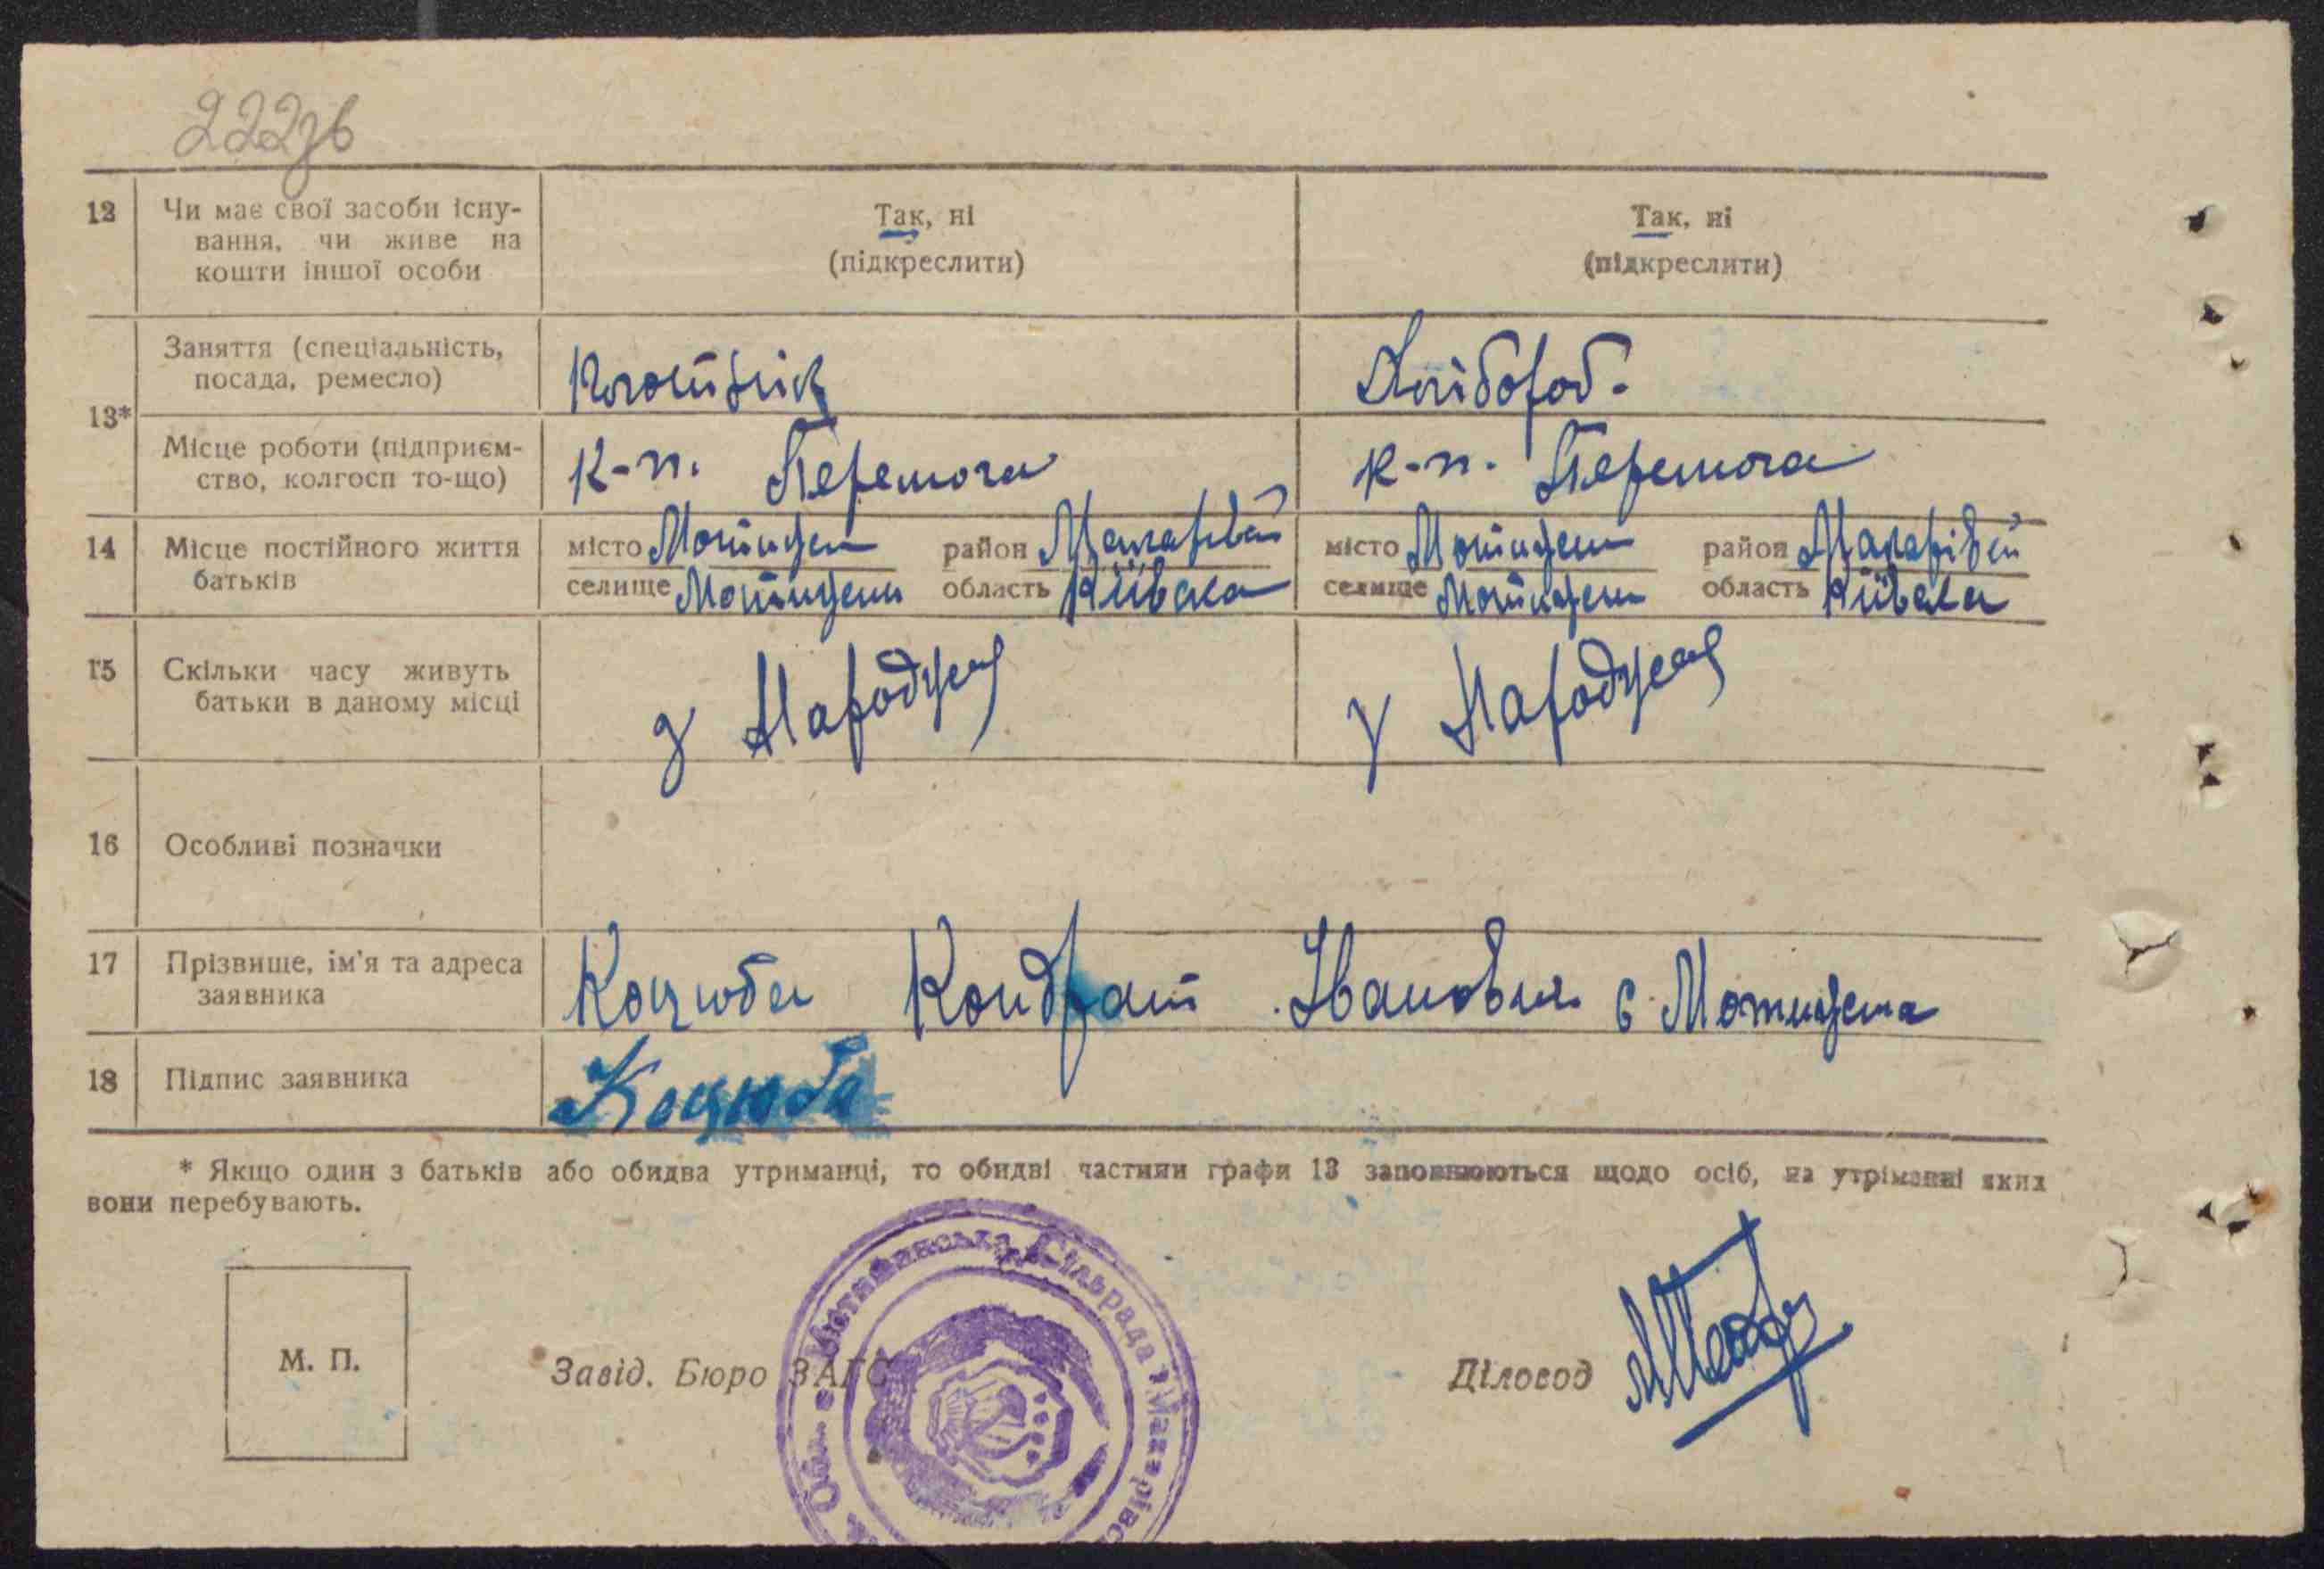 222зв
12 Чи має свої засоби існу-
вання, чи живе на
кошти іншої особи
Так, ні
(підкреслити)
Так, ні
(підкреслити)
13*
Заняття (спеціальність,
посада, ремесло)
Хлібороб.
Місце роботи (підприєм-
ство, колгосп то-що)
к-п. Перемога
к-п. Перемога
14 Місце постійного життя
батьків
місто Мотижен район
селище Мотижен область Київска
місто Мотижен район Макарівсий
селище Мотижен область Київска
15 Скільки часу живуть
батьки в даному місці
з Народженя
у Народженя
16 Особливі позначки
17 Прізвище, ім'я та адреса
заявника
Коцюба Кондрат Іванович с. Мотижена
18 Підпис заявника
Коцюба
* Якщо один з батьків або обидва утриманці, то обидві частини графи 13 заповнюються щодо осіб, на утріманні яких
вони перебувають.
М. П.
Завід. Бюро ЗАГС
Діловод
Мотижинська Сільрада Макарівс
Обл.